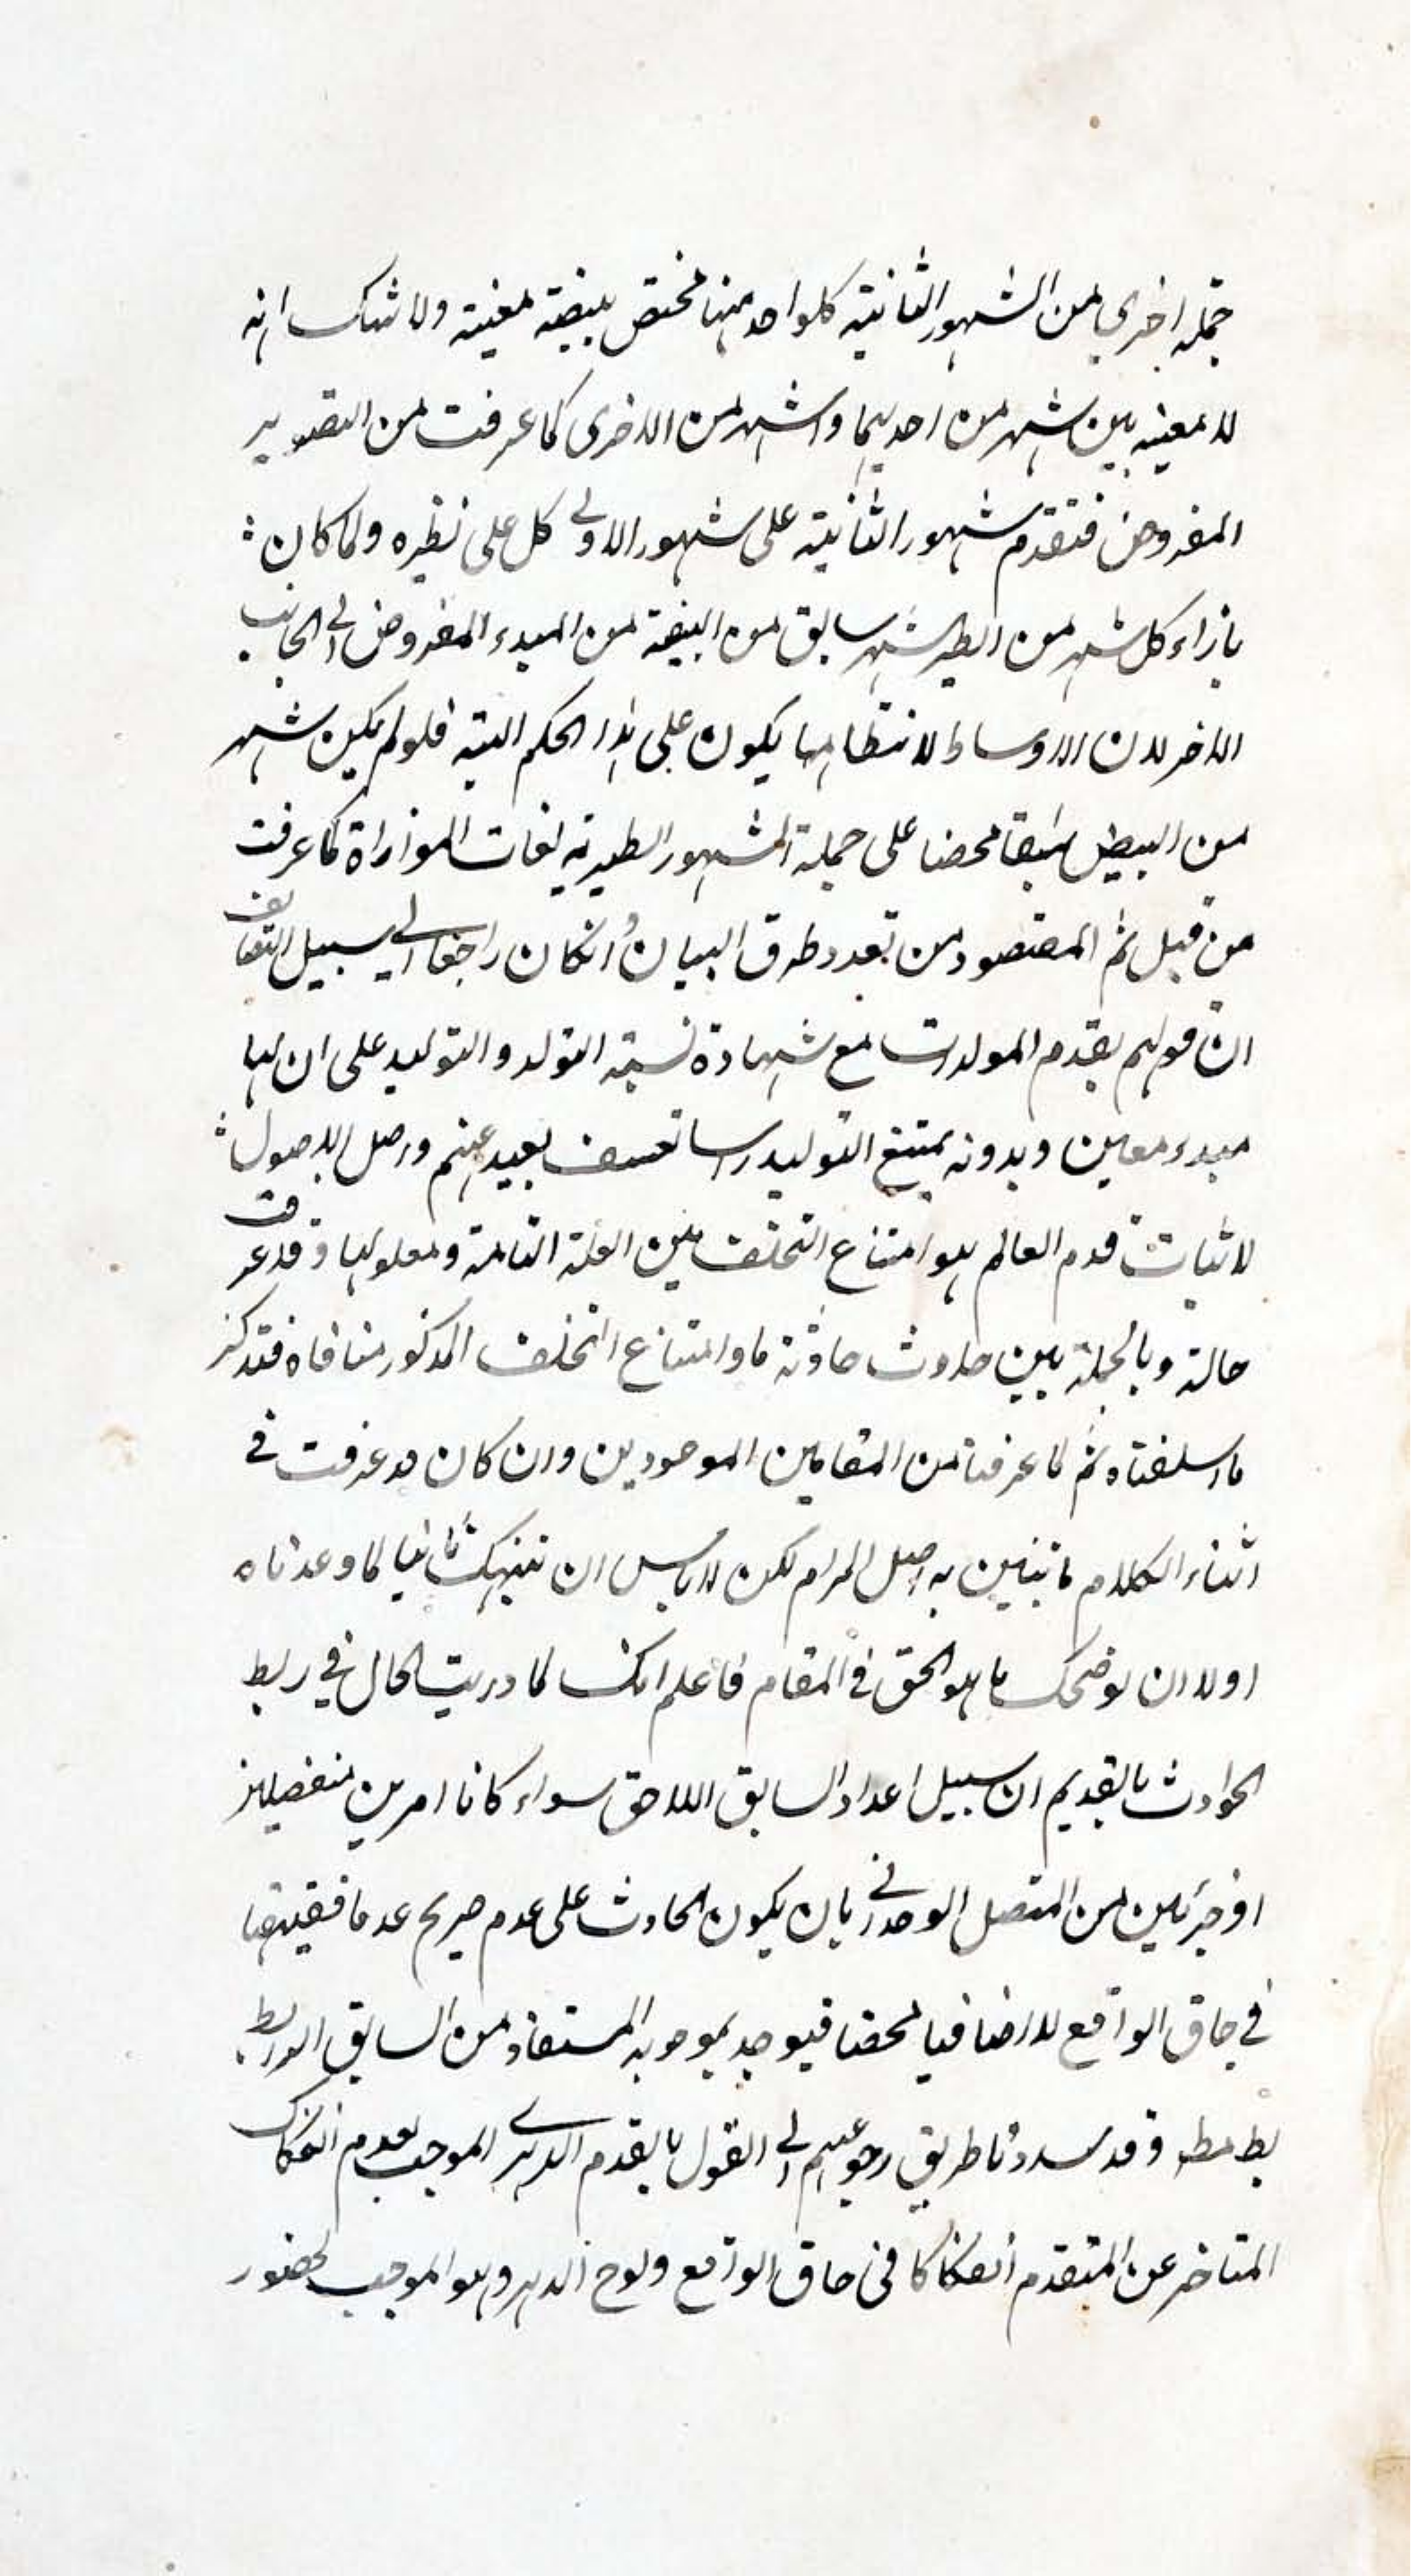 جملة اخري من الشهور الثانية كلواحد منها مختص ببيضة معينة ولا شك انه
لا معية بين شهر من احديهما و شهر من الاخرى كما عرفت من التصوير
المفروض فتقدم شهور الثانية على شهور الاولى كل على نظيره ولما كان
بازاء كل شهر من الطير شهر سابق من البيضة من المبدء المفروض الى الجانب
الاخر لان الاوساط لانتظامها يكون على هذا الحكم البتة فلو لم يكن شهر
من البيض سابقا محضا على جملة الشهور الطيرية لفات الموازاة كما عرفت
من قبل ثم المقصود من تعدد طرق البيان وانكان راجعا الى سبيل التضايف
ان قولهم بقدم المولدات مع شهادة نسبة التولد والتوليد على ان لها
مبدء معين وبدونه يمتنع التوليد راسا تعسف بعيد عنهم واصل الاصول
لاثبات قدم العالم هو امتناع التخلف بين العلة التامة ومعلولها وقد عرفت
حاله وبالجملة بين حدوث حادثة ما وامتناع التخلف المذكور منافاة فتذكر
ما اسلفناه ثم لما عرفت من المقامين الموعودين وان كان قد عرفت في
اثناء الكلام ما تبين به اصل المرام لكن لا باس ان ننبهك ثانيا لما وعدناه
اولا ان نوضحك ما هو الحق في المقام فاعلم انك لما دريت الحال في ربط
الحوادث بالقديم ان سبيل اعداد السابق اللاحق سواء كانا امرين منفصلين
او جزئين من المتصل الوحداني بان يكون الحادث على عدم صريح عدما حقيقيا
في حاق الواقع لا اضافيا محضا فيوجد بموجبه المستفاد من السابق الرابط
بط مط وقد سددنا طريق رجوعهم الى القول بالقدم الدهري الموجب لعدم انفكاك
المتاخر عن المتقدم انفكاكا في حاق الواقع ولوح الدهر وهو الموجب لحضور